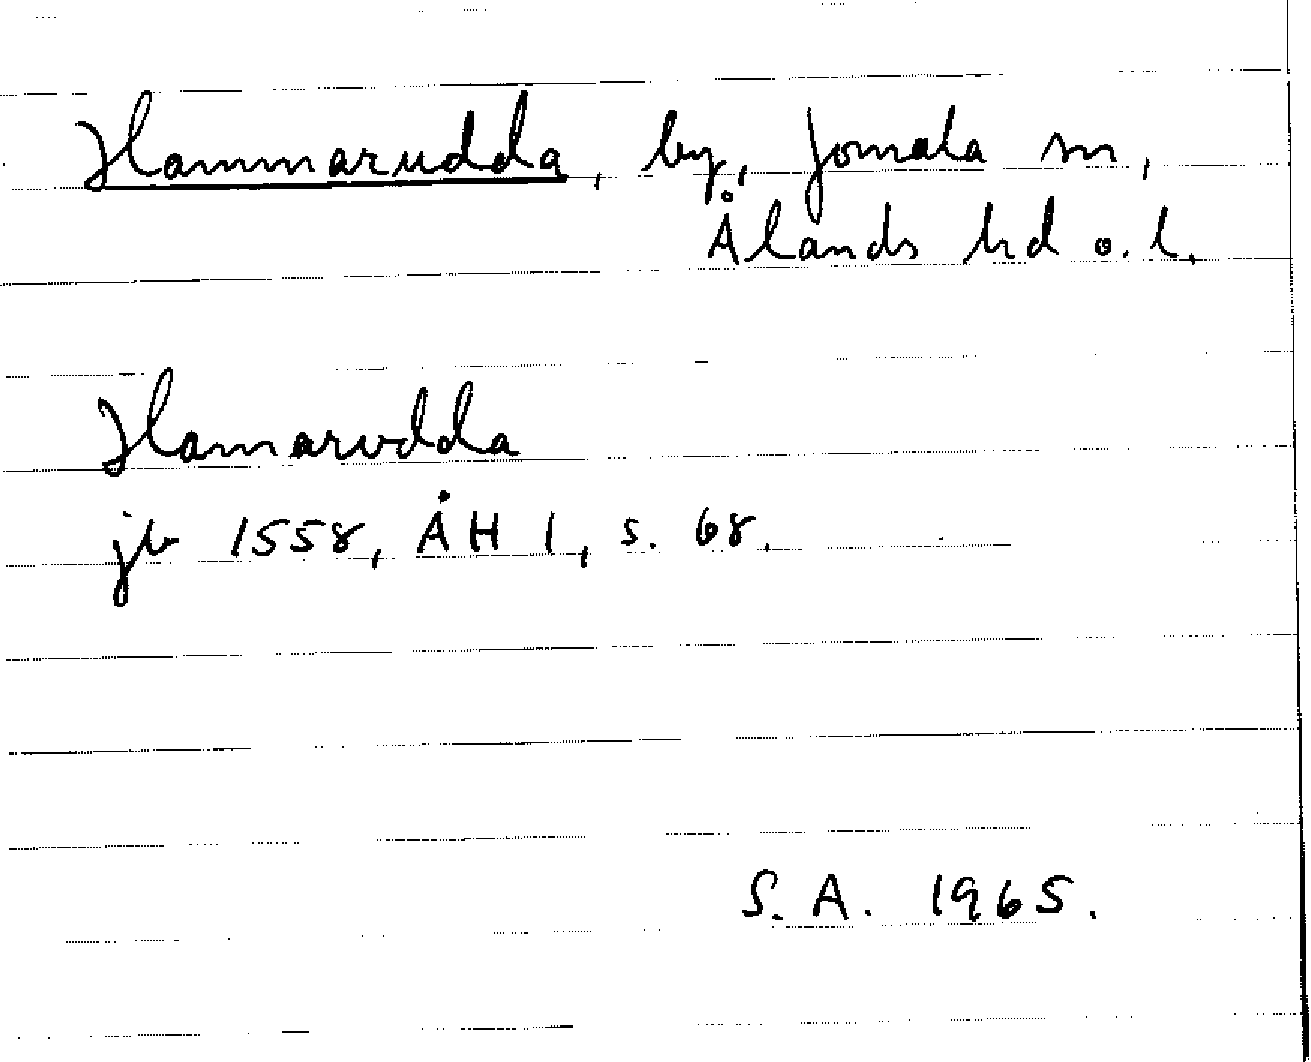 Hammarudda, by, Jomala sn,
Ålands hd o. l.
Hamarvdda
jb 1558, ÅH 1, s. 68.
S. A. 1965.